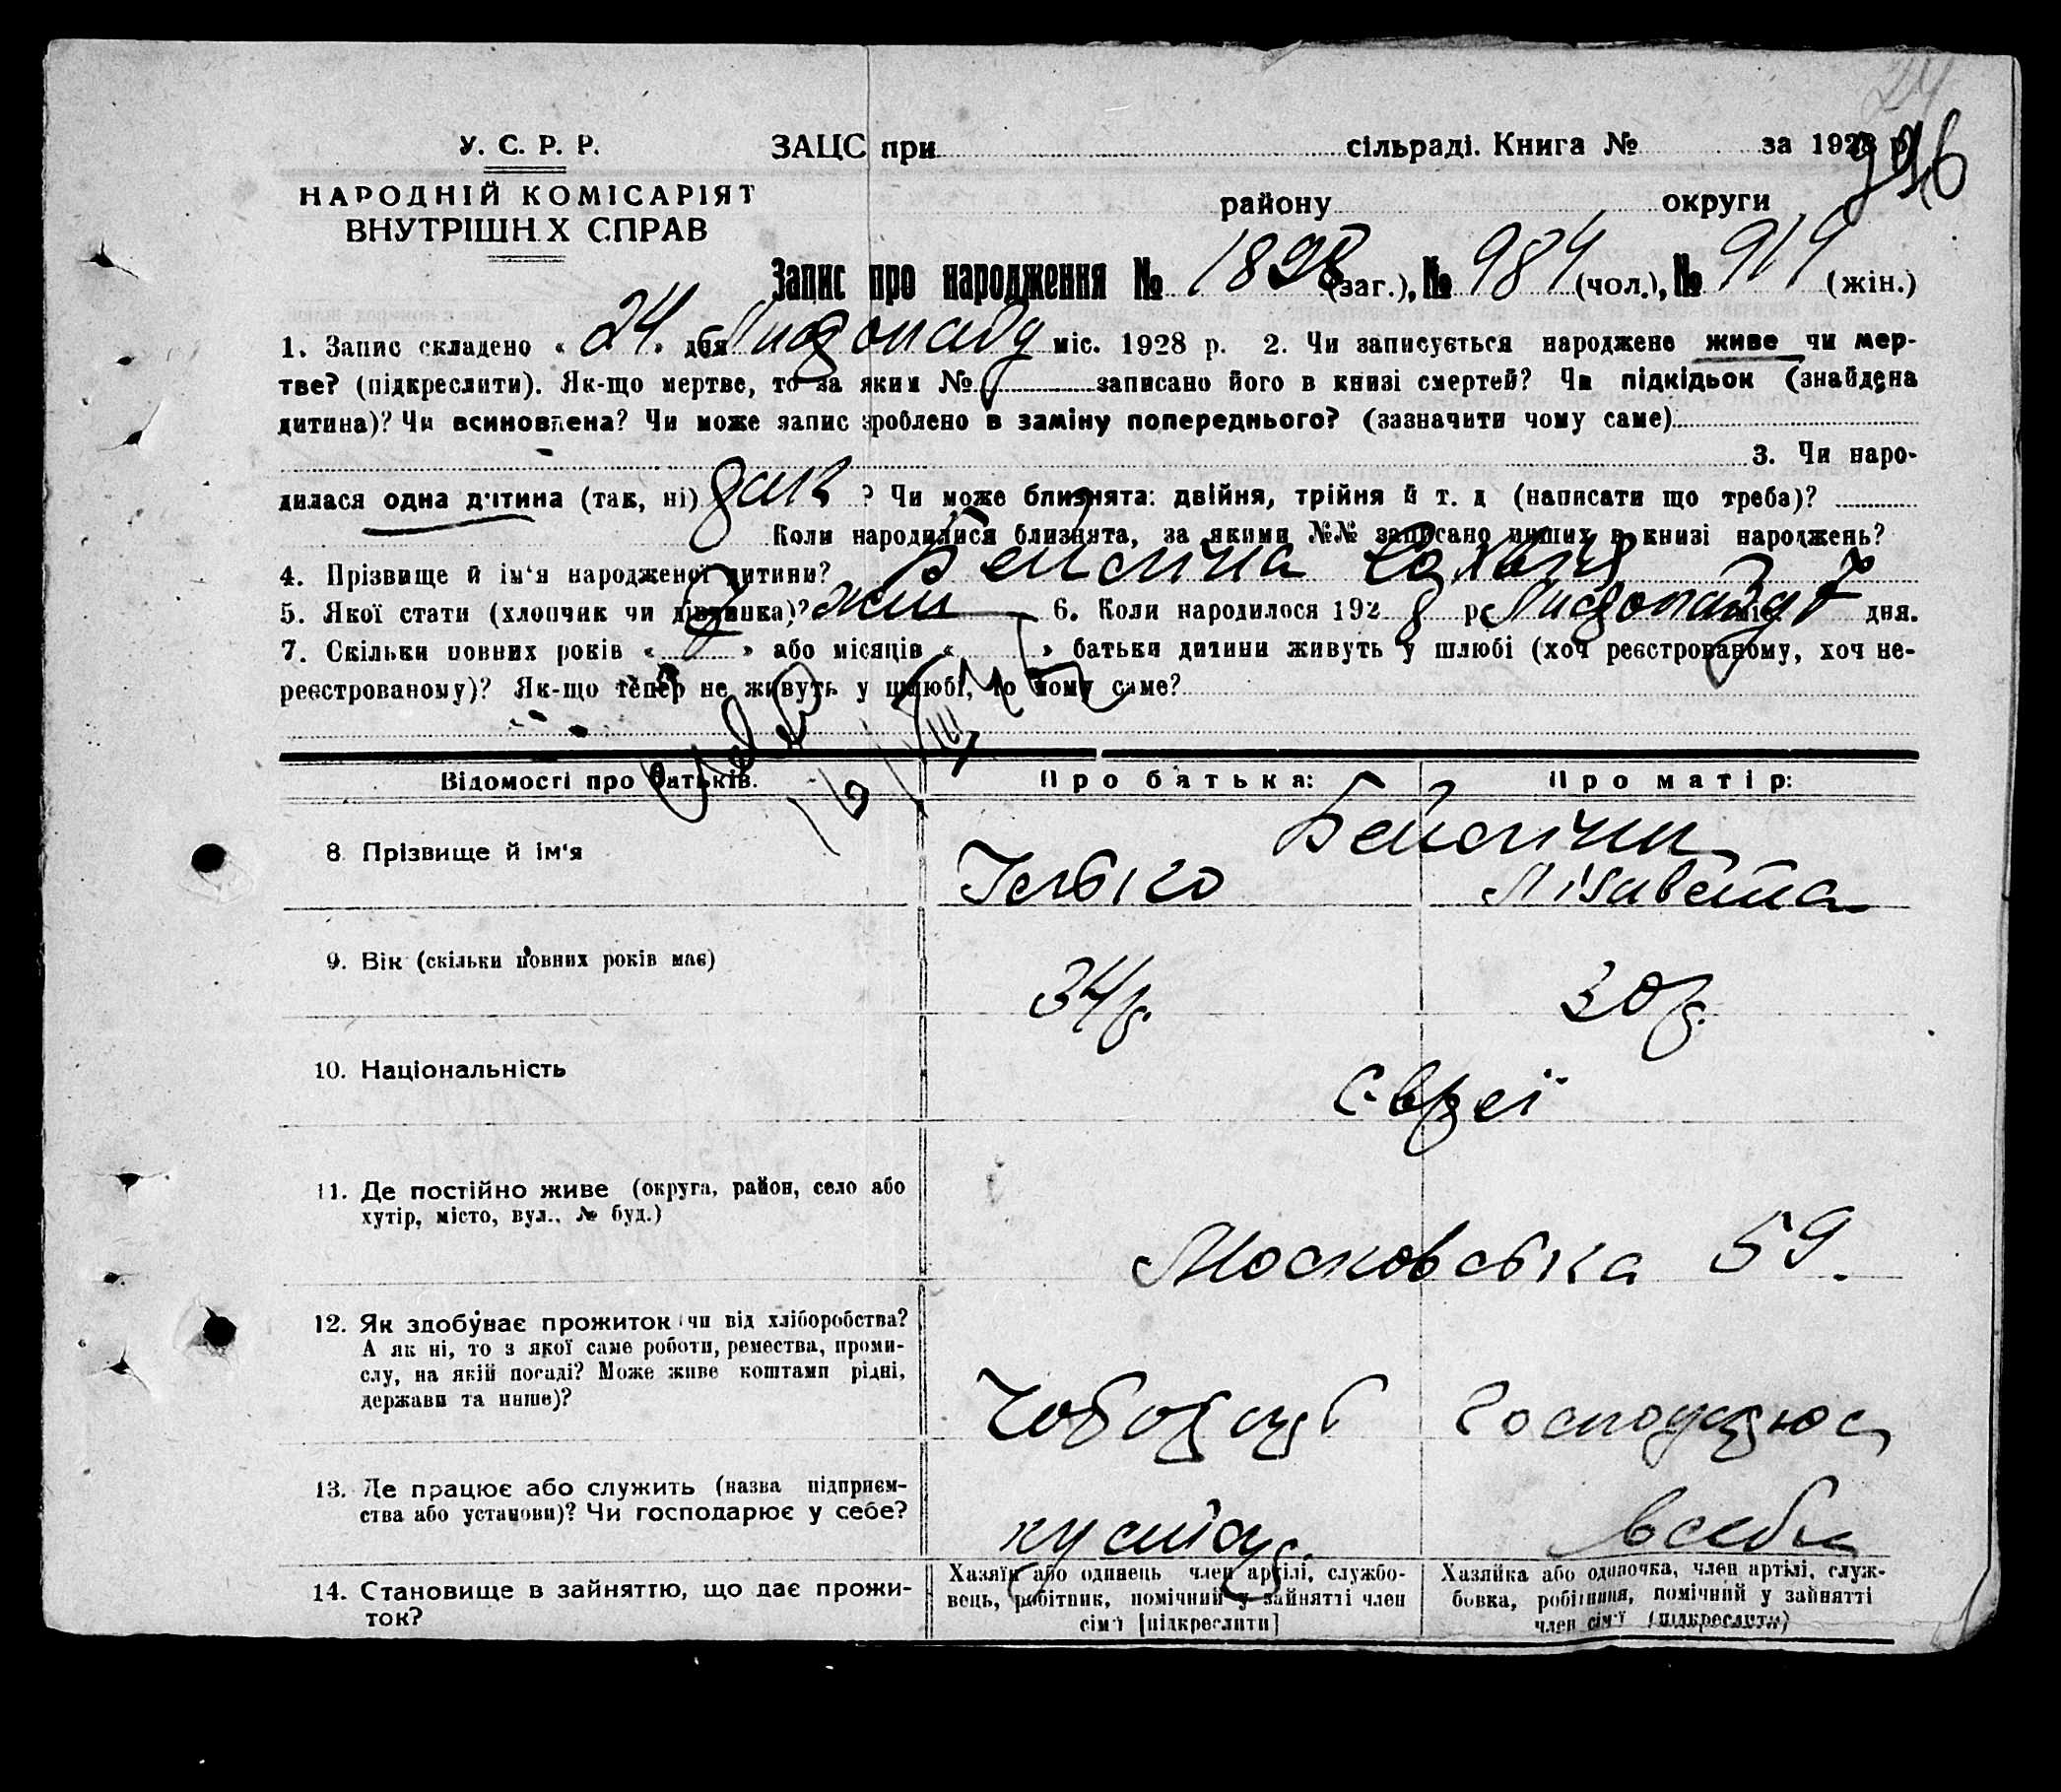 У. С. Р. Р.
ЗАЦС при сільраді. Книга № за 1928 р.
НАРОДНІЙ КОМІСАРІЯТ
ВНУТРІШН Х СПРАВ
району округи
Запис про народження № 1898 (заг.), № 984 (чол.), № 919 (жін.)
1. Запис складено « 24 » дня Листопаду міс. 1928 р. 2. Чи записується народжене живе чи мер-
тве? (підкреслити). Як-що мертве, то за яким № записано його в книзі смертей? Чи підкідьок (знайдена
дитина)? Чи всиновлена? Чи може запис зроблено в заміну попереднього? (зазначити чому саме)
3. Чи наро-
дилася одна дитина (так, ні) так ? Чи може близнята: двійня, трійня й т. д (написати що треба)?
Коли народилися близнята, за якими №№ записано инших в книзі народжень?
4. Прізвище й ім'я народженої дитини? Бейлсіна
5. Якої стати (хлопчик чи дівчинка)? жін 6. Коли народилося 1928 р. Листопаду міс. 7 дня.
7. Скільки повних років « » або місяців « » батьки дитини живуть у шлюбі (хоч реєстрованому, хоч не-
реєстрованому)? Як-що тепер не живуть у шлюбі, то чому саме?
Відомості про батьків. Про батька: Про матір:
8. Прізвище й ім'я
Лізавета
9. Вік (скільки повних років має) 34 р. 30 р.
10. Національність Євреї
11. Де постійно живе (округа, район, село або
хутір, місто, вул., № буд.)
Московська 59.
12. Як здобуває прожиток чи від хліборобства?
А як ні, то з якої саме роботи, ремества, проми-
слу, на якій посаді? Може живе коштами рідні,
держави та инше)?
Чоботарь Господарює
13. Де працює або служить (назва підприєм-
ства або установи)? Чи господарює у себе?
кустар. в себе
14. Становище в зайняттю, що дає прожи-
ток?
Хазяїн або одинець член артілі, службо-
вець, робітник, помічний у зайнятті член
сім'ї [підкреслити]
Хазяйка або одиночка, член артілі, служ-
бовка, робітниця, помічний у зайнятті
член сім'ї (підкреслити)